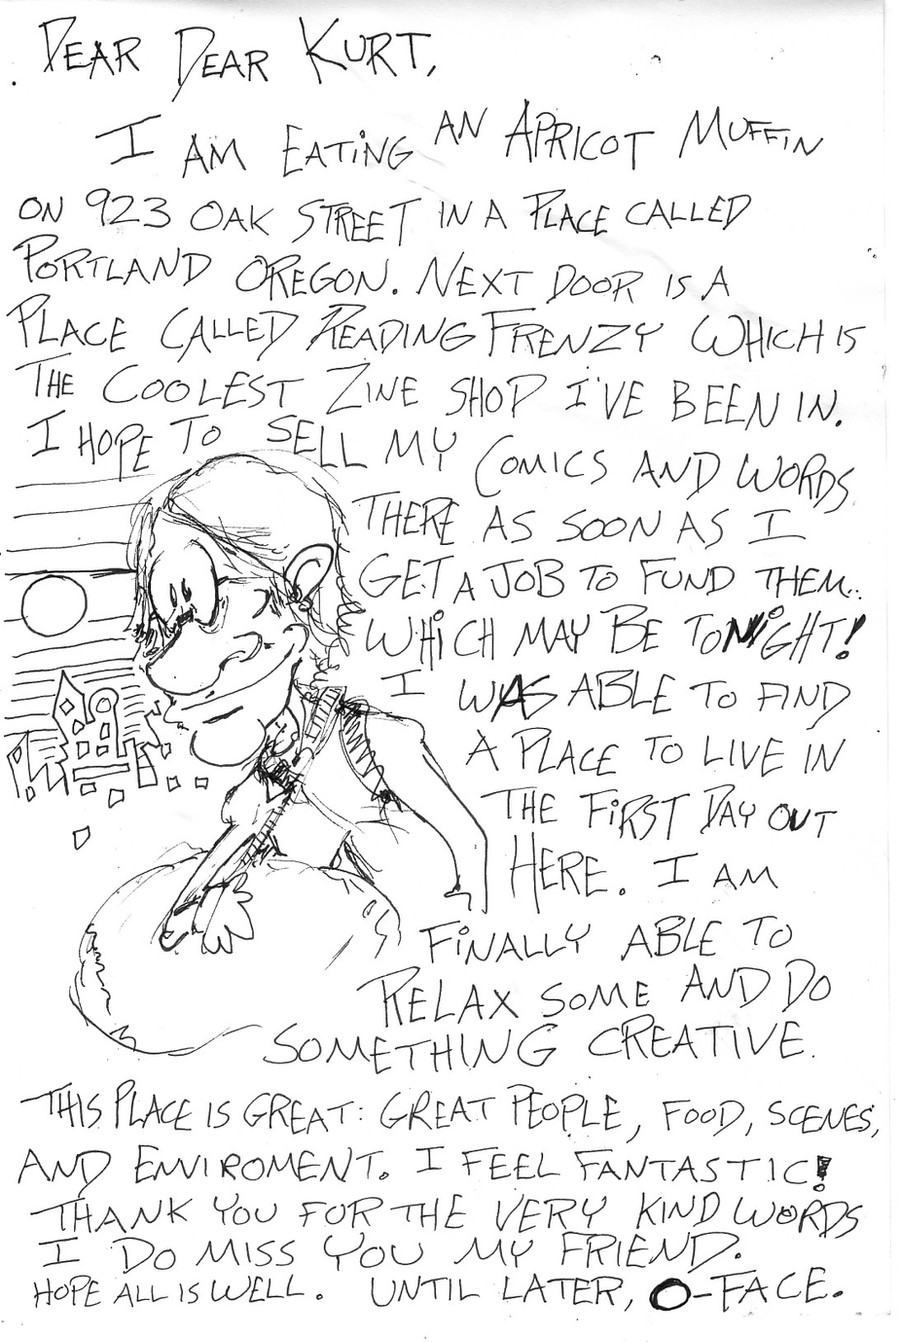 DEAR DEAR KURT,
I AM EATING AN APRICOT MUFFIN
ON 923 OAK STREET IN A PLACE CALLED
PORTLAND OREGON. NEXT DOOR IS A
PLACE CALLED READING FRENZY WHICH IS
THE COOLEST ZINE SHOP I'VE BEEN IN.
I HOPE TO SELL MY COMICS AND WORDS
THERE AS SOON AS I
GET A JOB TO FUND THEM..
WHICH MAY BE TONIGHT!
I WAS ABLE TO FIND
A PLACE TO LIVE IN
THE FIRST DAY OUT
HERE. I AM
FINALLY ABLE TO
RELAX SOME AND DO
SOMETHING CREATIVE.
THIS PLACE IS GREAT: GREAT PEOPLE, FOOD, SCENES,
AND ENVIROMENT. I FEEL FANTASTIC!
THANK YOU FOR THE VERY KIND WORDS
I DO MISS YOU MY FRIEND.
HOPE ALL IS WELL. UNTIL LATER, O-FACE.